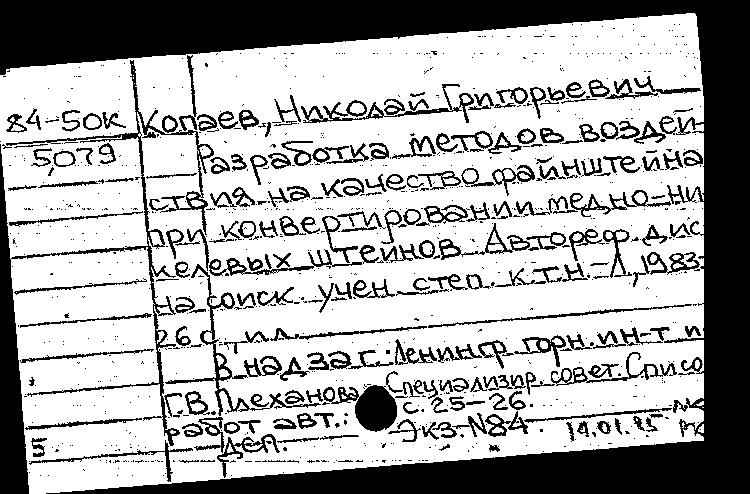 84-50к Копаев, Николай Григорьевич
5,079 Разработка методов воздей-
ствия на качество файнштейна
при конвертировании медно-ни
келевых штейнов. Автореф. дис
на соиск. учен. степ. к.т.н. -Л, 1983-
26 с., ил.
В надзаг.: Ленингр горн. ин-т и
Г.В. Плеханова. Специализир. совет. Списо
работ авт.: с. 25-26.
Деп. Экз. N84. 14.01.85
5